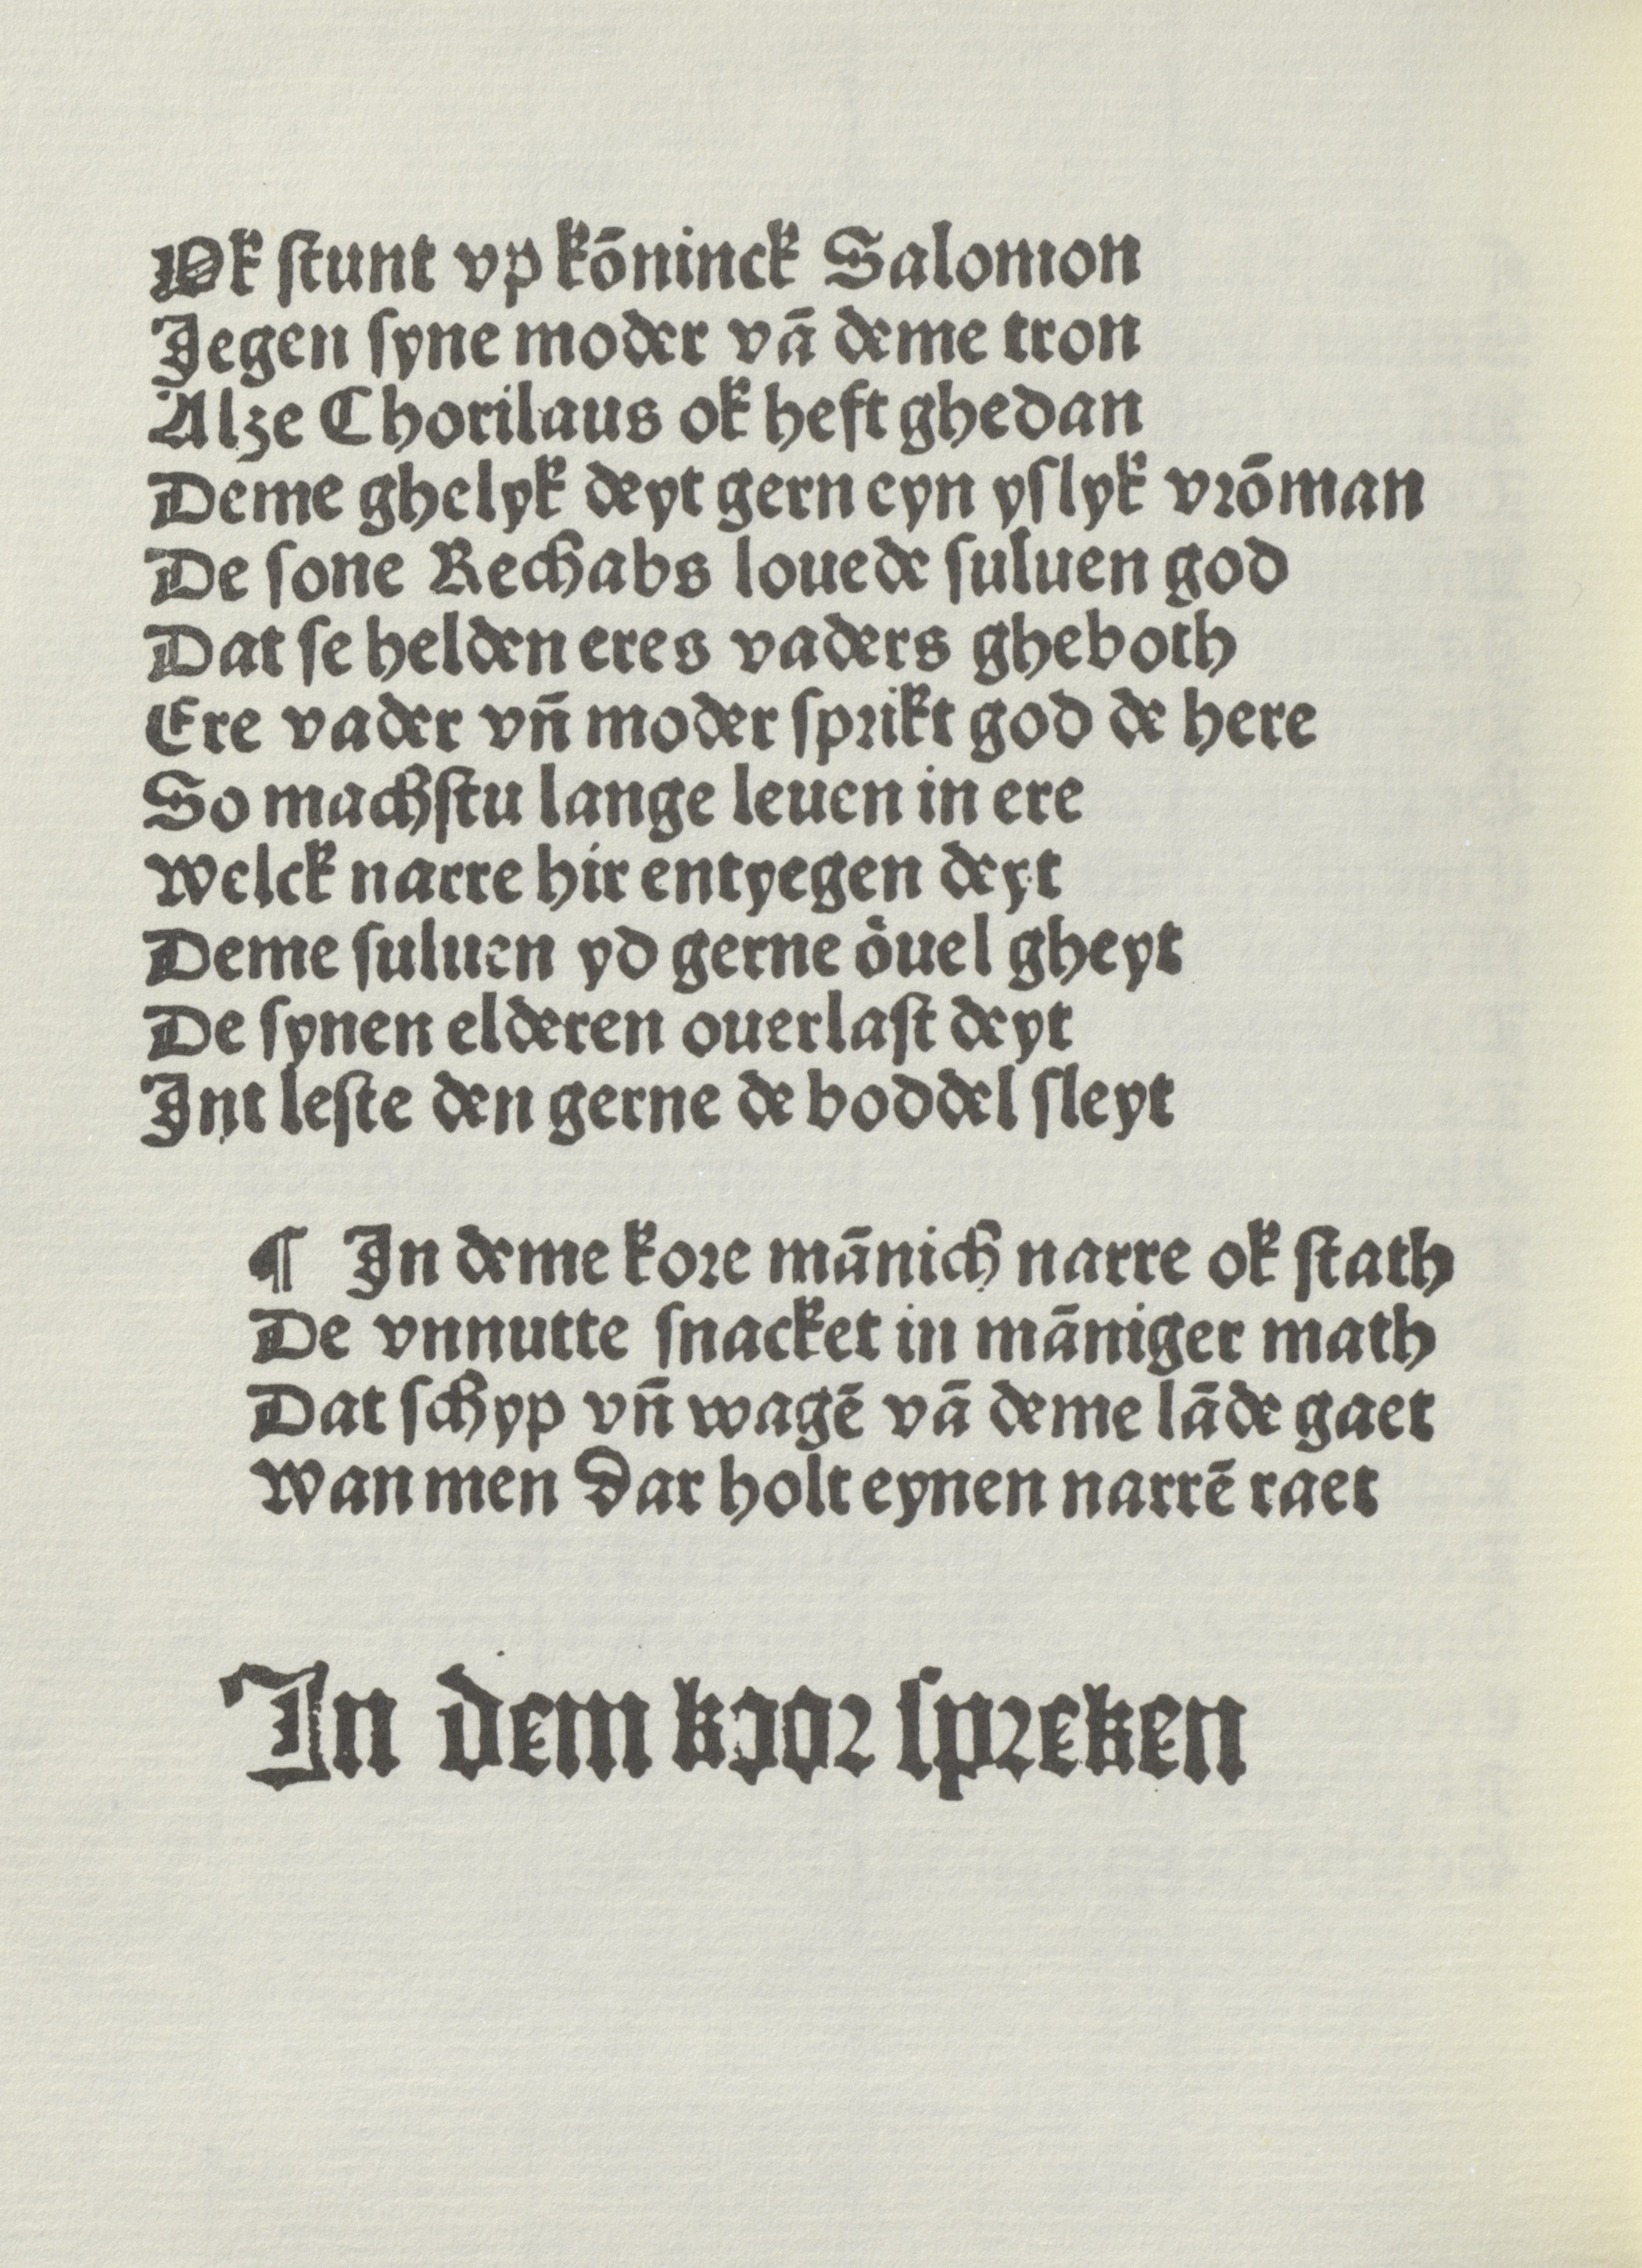 Ok ſtunt vp kōninck Salomon
Jegen ſyne moder vā deme tron
Alze Chorilaus ok heft ghedan
Deme ghelyk deyt gern eyn yſlyk vrōman
De ſone Rechabs louede ſuluen god
Dat ſe helden eres vaders gheboth
Ere vader vñ moder ſprikt god de here
So machſtu lange leuen in ere
Welck narre hir entyegen deyt
Deme ſuluen yd gerne öuel gheyt
De ſynen elderen ouerlaſt deyt
Int leſte den gerne de boddel ſleyt
¶ In deme kore mānich narre ok ſtath
De vnnutte ſnacket in māniger math
Dat ſchyp vñ wagē vā deme lāde gaet
Wan men dar holt eynen narrē raet
In dem koor ſpreken